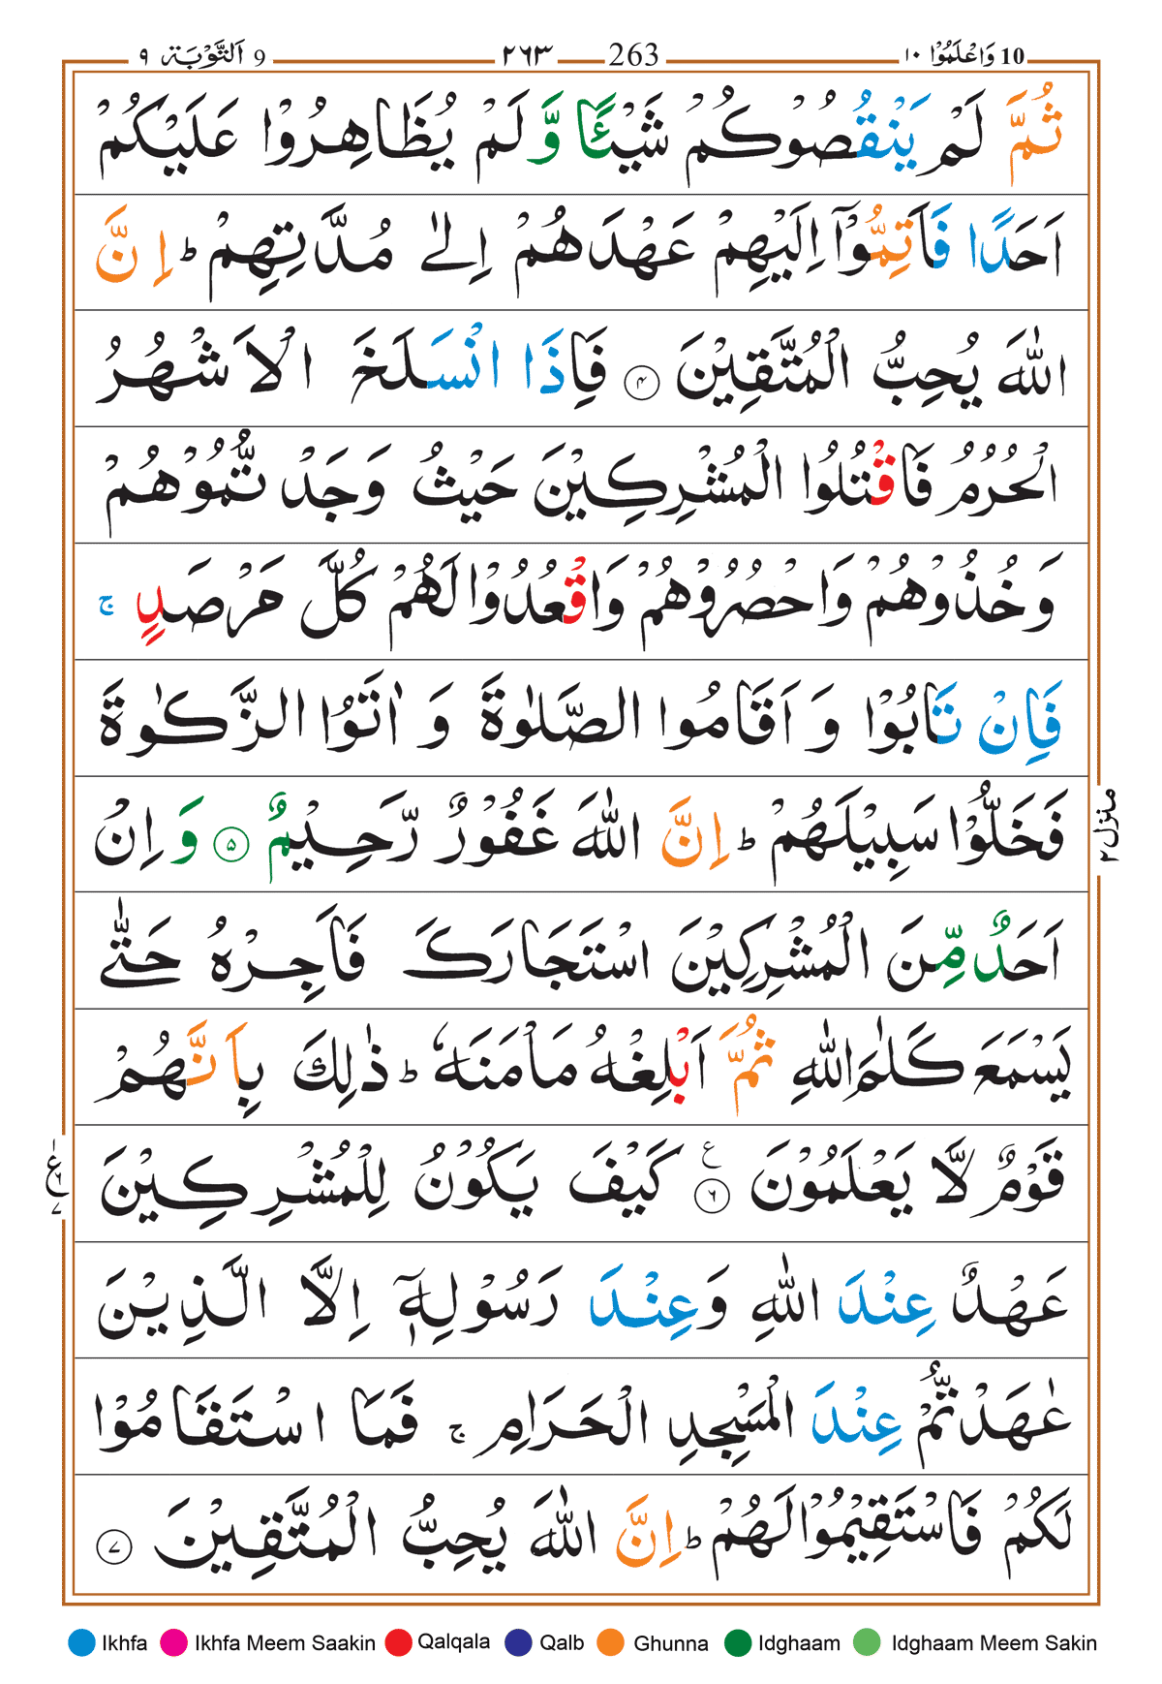 10 وَاعْلَمُوْٓا ١٠ 263 ٢٦٣ 9 اَلتَّوْبَة ٩
ثُمَّ لَمْ يَنْقُصُوْكُمْ شَيْـًٔا وَّ لَمْ يُظَاهِرُوْا عَلَيْكُمْ
اَحَدًا فَاَتِمُّوْۤا اِلَيْهِمْ عَهْدَهُمْ اِلٰى مُدَّتِهِمْ ؕ اِنَّ
اللّٰهَ يُحِبُّ الْمُتَّقِيْنَ ۴ فَاِذَا انْسَلَخَ الْاَشْهُرُ
الْحُرُمُ فَاقْتُلُوا الْمُشْرِكِيْنَ حَيْثُ وَجَدْتُّمُوْهُمْ
وَخُذُوْهُمْ وَاحْصُرُوْهُمْ وَاقْعُدُوْا لَهُمْ كُلَّ مَرْصَدٍ ۚ
فَاِنْ تَابُوْا وَ اَقَامُوا الصَّلٰوةَ وَ اٰتَوُا الزَّكٰوةَ
فَخَلُّوْا سَبِيْلَهُمْ ؕ اِنَّ اللّٰهَ غَفُوْرٌ رَّحِيْمٌ ۵ وَ اِنْ
منزل ٢
اَحَدٌ مِّنَ الْمُشْرِكِيْنَ اسْتَجَارَكَ فَاَجِرْهُ حَتّٰى
يَسْمَعَ كَلٰمَ اللّٰهِ ثُمَّ اَبْلِغْهُ مَاْمَنَهٗ ؕ ذٰلِكَ بِاَنَّهُمْ
قَوْمٌ لَّا يَعْلَمُوْنَ ۶ ع كَيْفَ يَكُوْنُ لِلْمُشْرِكِيْنَ
عَهْدٌ عِنْدَ اللّٰهِ وَعِنْدَ رَسُوْلِهٖۤ اِلَّا الَّذِيْنَ
عٰهَدْتُّمْ عِنْدَ الْمَسْجِدِ الْحَرَامِ ۚ فَمَا اسْتَقَامُوْا
لَكُمْ فَاسْتَقِيْمُوْا لَهُمْ ؕ اِنَّ اللّٰهَ يُحِبُّ الْمُتَّقِيْنَ ۷
Ikhfa Ikhfa Meem Saakin Qalqala Qalb Ghunna Idghaam Idghaam Meem Sakin